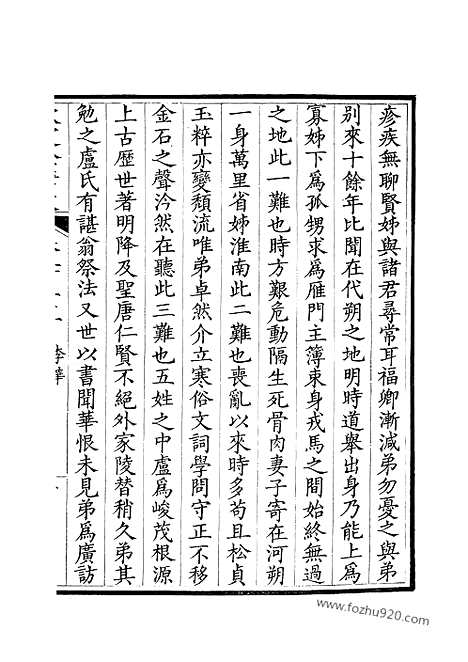 疹疾無聊賢姊與諸君尋常耳福卿漸減弟勿憂之與弟
別來十餘年比聞在代朔之地明時道舉出身乃能上爲
寡姊下爲孤甥求爲雁門主簿束身戎馬之間始終無過
之地此一難也時方艱危動隔生死骨肉妻子寄在河朔
一身萬里省姊淮南此二難也喪亂以來時多苟且松貞
玉粹亦變頽流唯弟卓然介立寒俗文詞學問守正不移
金石之聲泠然在聽此三難也五姓之中盧爲峻茂根源
上古歷世著明降及聖唐仁賢不絕外家陵替稍久弟其
勉之盧氏有諶翁祭法又世以書聞華恨未見弟爲廣訪
李華
www.fozhu920.com